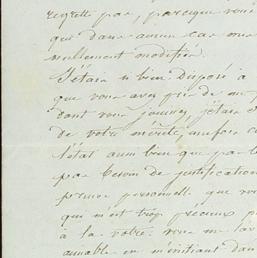 regrette pas, parceque vous
que dans aucun cas
nullement modifiée.
J'étais si bien disposé à
que vous avez pris de me
dont vous jouissez, j'étais
de votre mérite,
l'état aussi bien que par
pas besoin de justification
personnelle que vous
qui m'est trop précieux p
à la votre. vous me
aimable en m'initiant dans